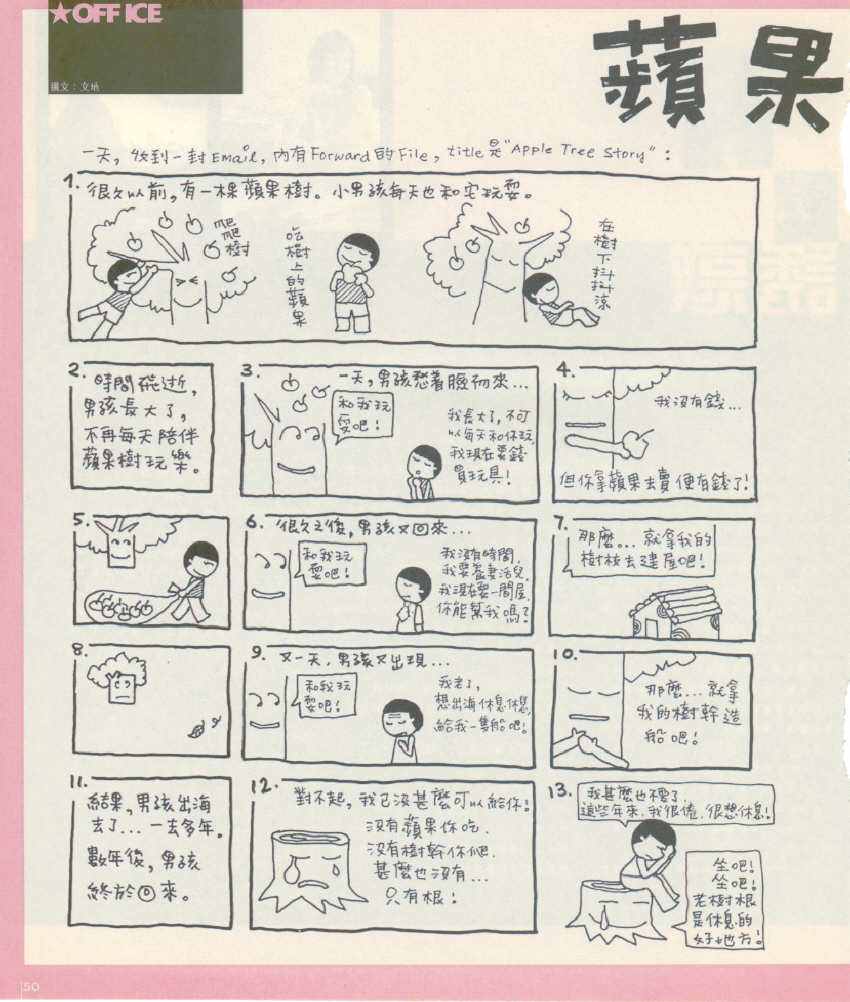 ★OFFICE
撰文：文地
蘋果
一天，收到一封Email，內有Forward的File，title是"Apple Tree Story"：
1.
很久以前，有一棵蘋果樹。小男孩每天也和它玩耍。
爬爬樹
吃樹上的蘋果
在樹下抖抖涼
2.
時間飛逝，
男孩長大了，
不再每天陪伴
蘋果樹玩樂。
3.
一天，男孩愁著臉而來...
和我玩
耍吧！
我長大了，不可
以每天和你玩，
我現在要錢
買玩具！
4.
我沒有錢...
但你拿蘋果去賣便有錢了！
5.
6.
很久之後，男孩又回來...
和我玩
耍吧！
我沒有時間，
我要養妻活兒，
我現在要一間屋，
你能幫我嗎？
7.
那麼...就拿我的
樹枝去建屋吧！
8.
9.
又一天，男孩又出現...
和我玩
耍吧！
我老了，
想出海休息休息，
給我一隻船吧！
10.
那麼...就拿
我的樹幹造
船吧！
11.
結果，男孩出海
去了...一去多年。
數年後，男孩
終於回來。
12.
對不起，我已沒甚麼可以給你！
沒有蘋果你吃．
沒有樹幹你爬．
甚麼也沒有...
只有根！
13.
我甚麼也不要了．
這些年來，我很倦．很想休息！
坐吧！
坐吧！
老樹根
是休息的
好地方！
50